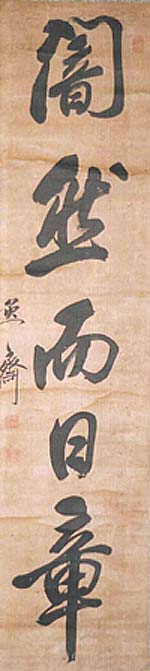 闇然而日章
齋